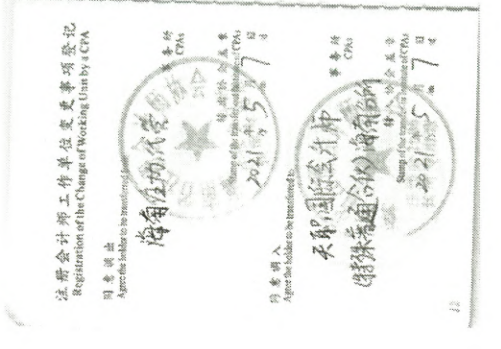 注册会计师工作单位变更事项登记
Registration of the Change of Working Unit by a CPA
同意调出
Agree the holder to be transferred from
海南注协代管
事务所
CPAs
转出协会盖章
Stamp of the transfer-out Institute of CPAs
2021年5月7日
/y /m /d
同意调入
Agree the holder to be transferred to
天职国际会计师
(特殊普通合伙)海南分所
事务所
CPAs
转入协会盖章
Stamp of the transfer-in Institute of CPAs
2021年5月7日
/y /m /d
12